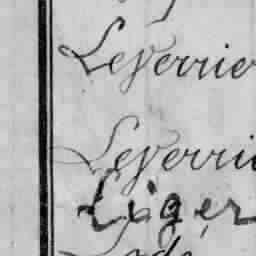 Leverrier
Leverri
Liger